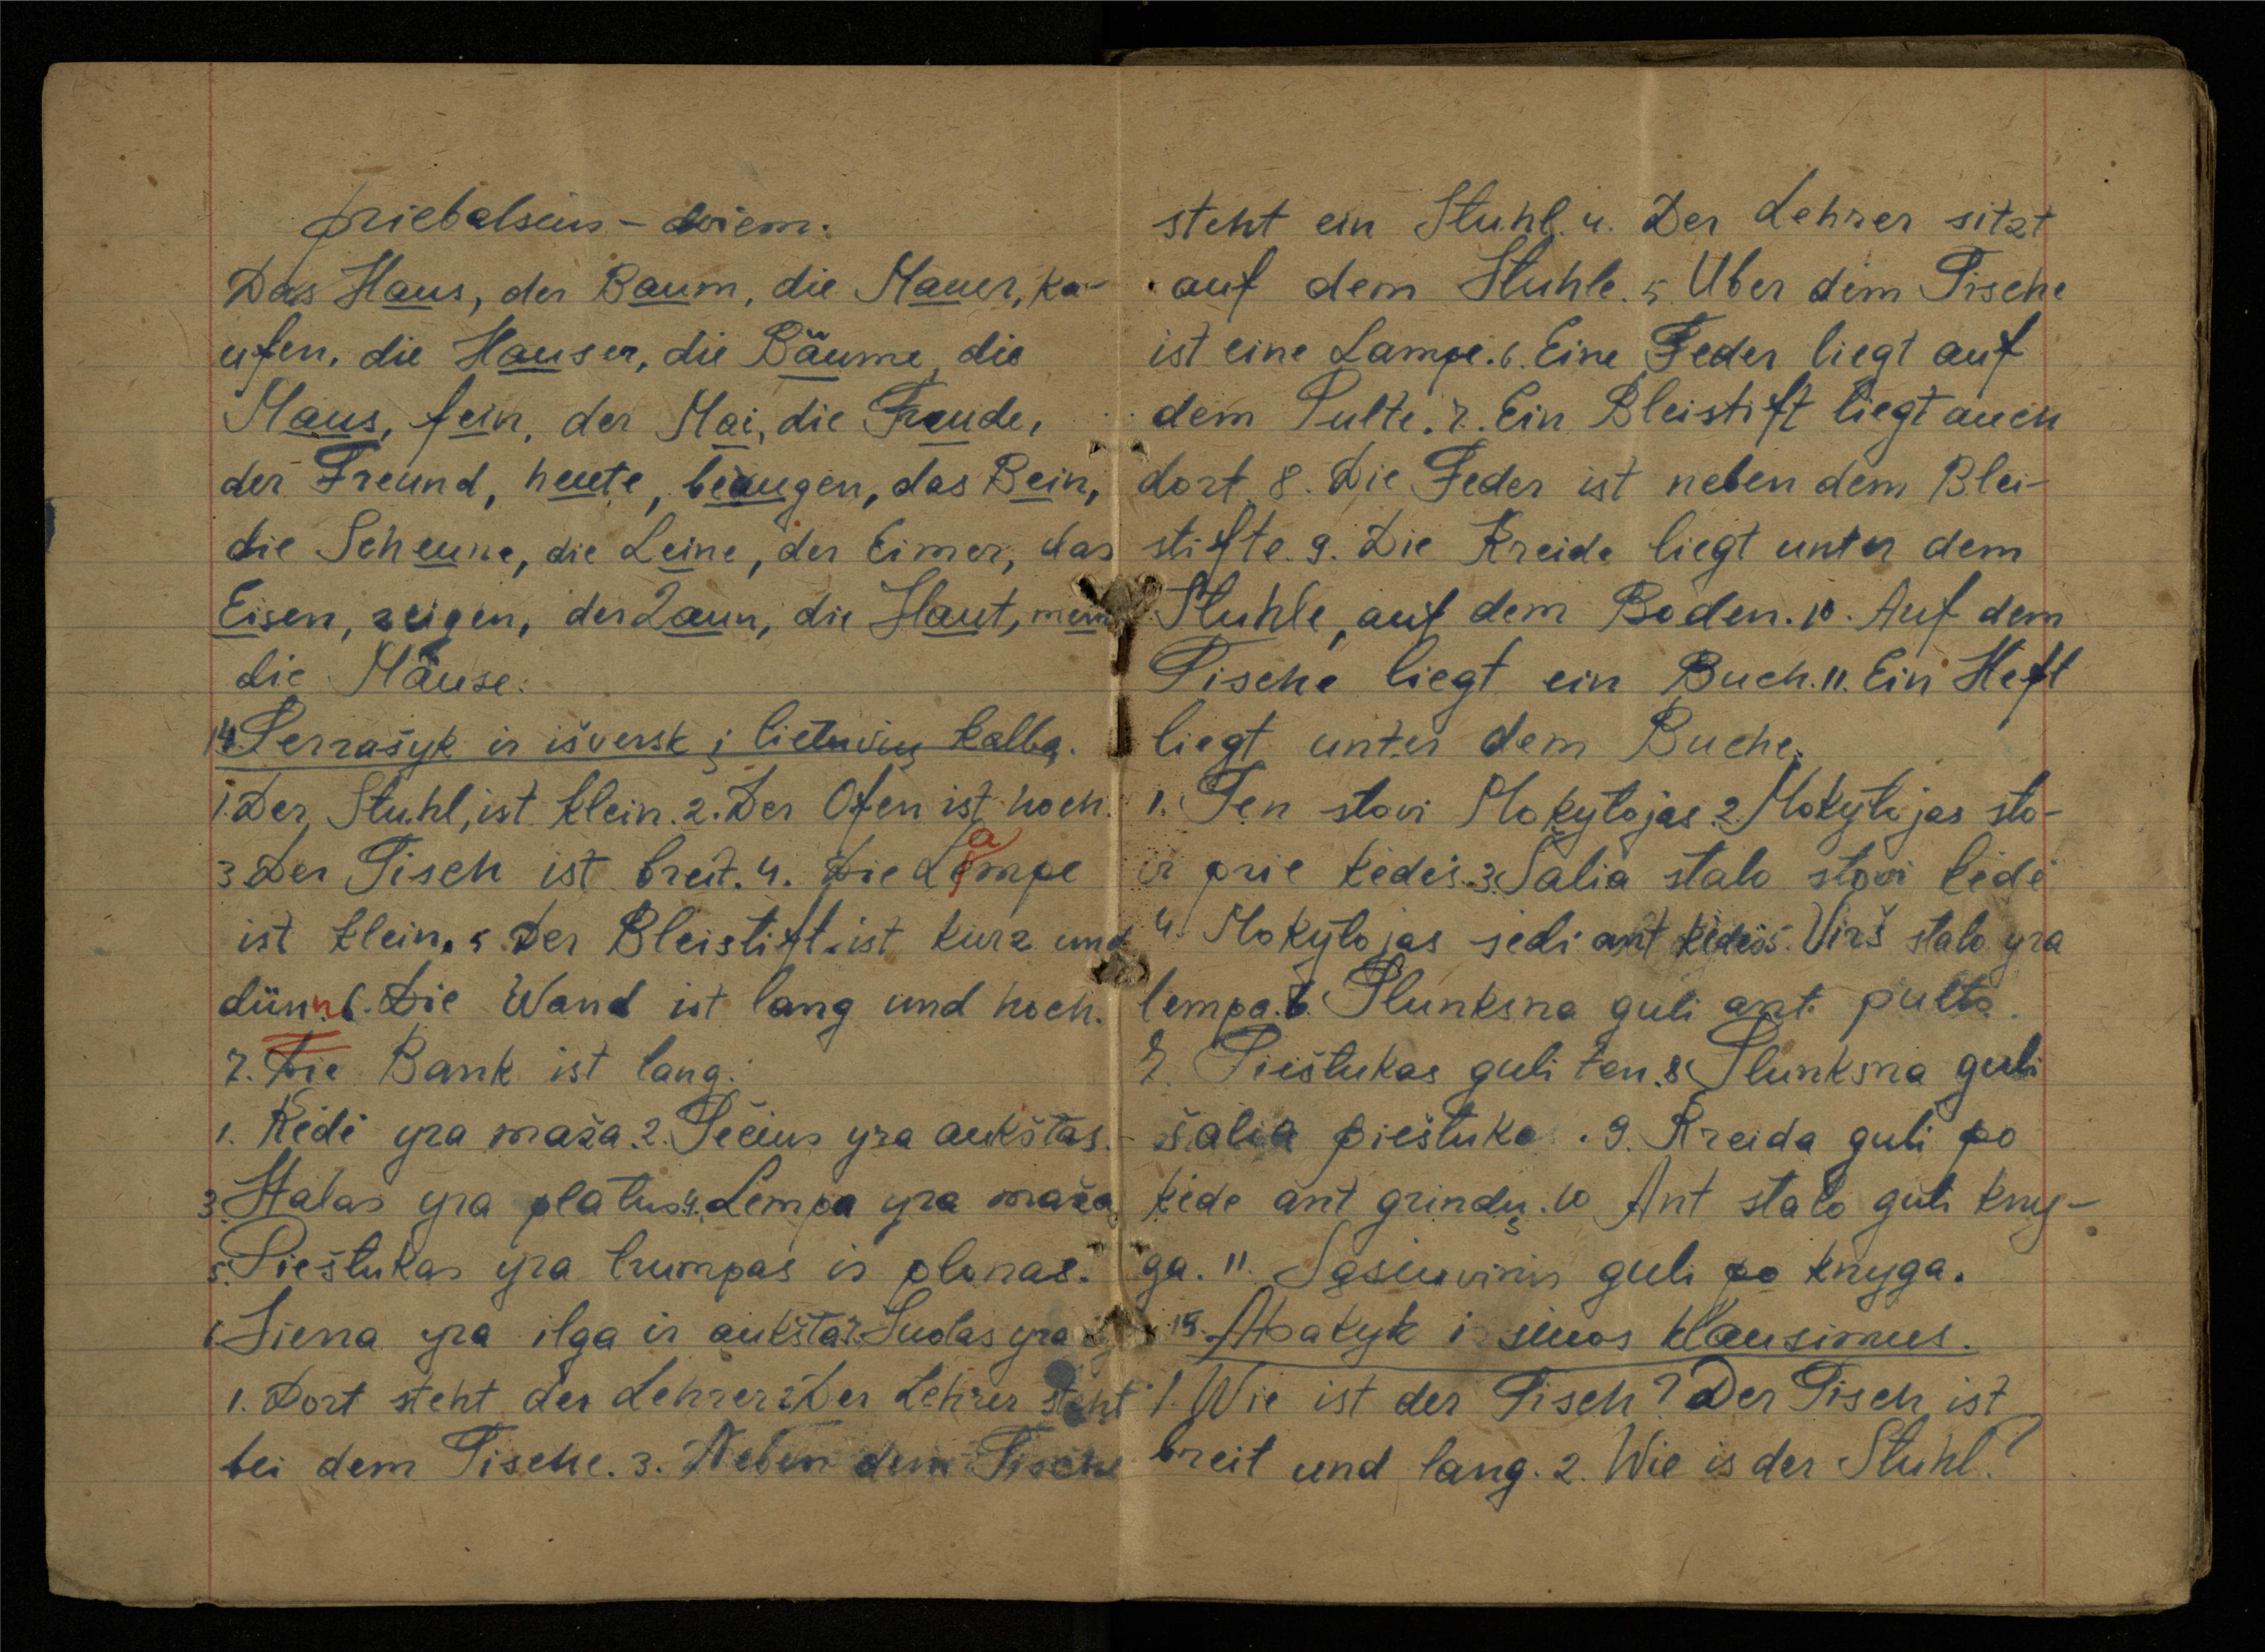 priebalsius - dviem.
Das Haus, der Baum, die Mauer, ka-
ufen, die Hauser, die Bäume, die
Maus, fein, der Mai, die Freude,
der Freund, heute, beaugen, das Bein,
die Scheune, die Leine, der Eimer, das
Eisen, zeigen, der Zaun, die Haut, mein
die Mäuse.
14. Perrašyk ir išversk į lietuvių kalbą.
1. Der Stuhl, ist klein. 2. Der Ofen ist hoch.
3 Der Tisch ist breit. 4. Die Lampe
ist klein. 5 Der Bleistift ist kurz und
dünn. 6. Die Wand ist lang und hoch.
7. Die Bank ist lang.
1. Kėdė yra maža. 2. Pečius yra aukštas.
3. Stalas yra platus. 4. Lempa yra maža
5. Pieštukas yra trumpas ir plonas.
6. Siena yra ilga ir aukšta. 7. Suolas yra
1. Dort steht der Lehrer. 2 Der Lehrer steht
bei dem Tische. 3. Neben dem Tische
steht ein Stuhl. 4. Der Lehrer sitzt
auf dem Stuhle. 5 Uber dem Tische
ist eine Lampe. 6. Eine Feder liegt auf
dem Pulte. 7. Ein Bleistift liegt auch
dort 8. Die Feder ist neben dem Blei-
stifte. 9. Die Kreide liegt unter dem
Stuhle, auf dem Boden. 10. Auf dem
Tische liegt ein Buch. 11. Ein Heft
liegt unter dem Buche.
1. Ten stovi Mokytojas. 2. Mokytojas sto-
vi prie kėdės. 3. Šalia stalo stovi kėdė
4. Mokytojas sėdi ant kėdės 5. Virš stalo yra
lempa. 6. Plunksna guli ant pulto.
7. Pieštukas guli ten. 8 Plunksna guli
šalia pieštuko. 9. Kreida guli po
kėde ant grindų. 10 Ant stalo guli kny-
ga. 11. Sąsiuvinis guli po knyga.
15. Atsakyk i šiuos klausimus.
1. Wie ist der Tisch? Der Tisch ist
breit und lang. 2. Wie is der Stuhl?